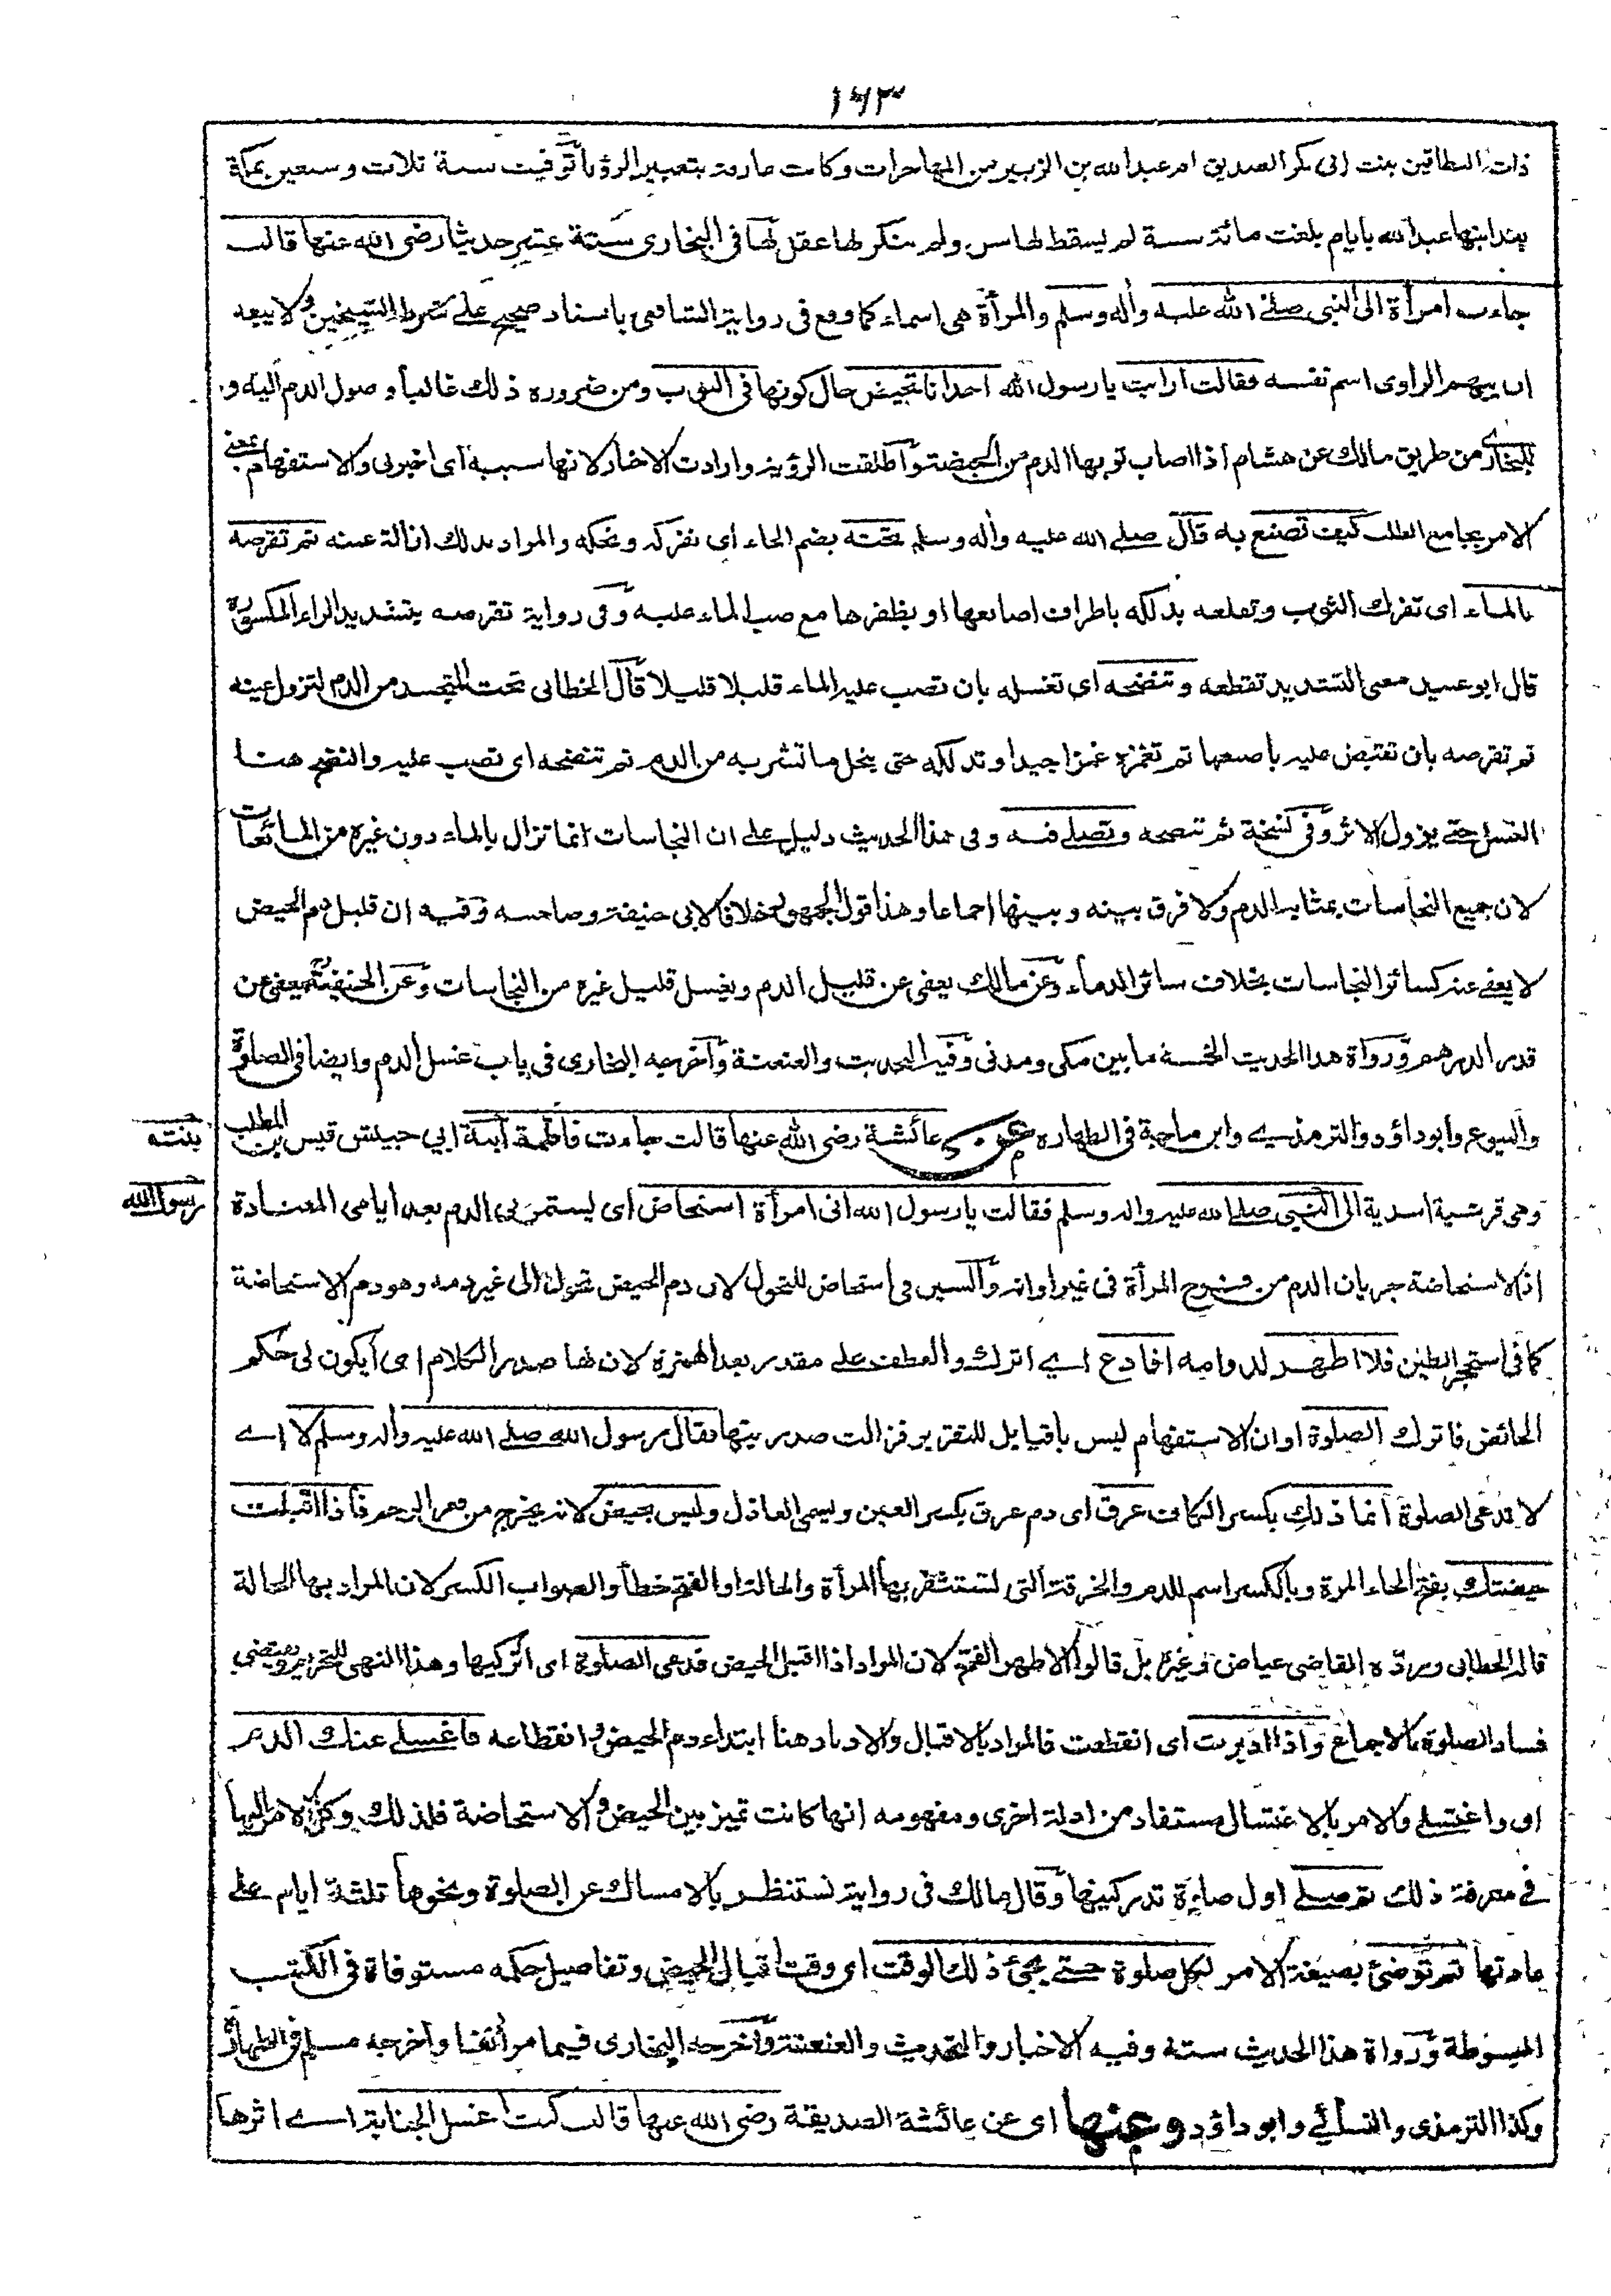 ١٦٣
ذات النطاقين بنت ابى بكر الصديق ام عبد الله بن الزبير من المهاجرات وكانت عارفة بتعبير الرؤيا توفيت سنة ثلاث وسبعين بمكة
بعد ابنها عبد الله بايام بلغت مائة سنة لم يسقط لها سن ولم ينكر لها عقل لها فى البخارى ستة عشر حديثا رضى الله عنها قالت
جاءت امرأة الى النبى صلے الله عليه وأله وسلم والمرأة هى اسماء كما وقع فى رواية الشافعى باسناد صحيح على شرط الشيخين ولا يبعد
ان يبهم الراوى اسم نفسه فقالت أرايت يا رسول الله احدانا تحيض حال كونها فى الثوب ومن ضروره ذلك غالبا وصول الدم اليه و
للبخارى من طريق مالك عن هشام اذا اصاب ثوبها الدم من الحيضة واطلقت الرؤية وارادت الاخبار لانها سببه اى اخبرنى والاستفهام بمعنى
الامر بجامع الطلب كيف تصنع به قال صلے الله عليه وأله وسلم تحته بضم الحاء اى تفركه وتحكه والمراد بذلك ازالة عينه ثم تقرصه
بالماء اى تفرك الثوب وتقلعه بدلكه باطراف اصابعها او بظفرها مع صب الماء عليه وفى رواية تقرصه بتشديد الراء المكسورة
قال ابو عبيد معنى التشديد تقطعه وتنضحه اى تغسله بان تصب عليه الماء قليلا قليلا قال الخطابى تحت المتجسد من الدم لتزول عينه
ثم تقرصه بان تقبض عليه باصبعها ثم تغمزه غمزا جيدا وتدلكه حتى ينحل ما تشربه من الدم ثم تنضحه اى تصب عليه والنضح هنا
الغسل حتے يزول الاثر وفى نسخة ثم تنضحه وتصلے فيه وفى هذا الحديث دليل على ان النجاسات انما تزال بالماء دون غيره من المائعات
لان جميع النجاسات بمثابة الدم ولا فرق بينه وبينها اجماعا وهذا قول الجمهور خلافا لابى حنيفة وصاحبه وفيه ان قليل دم الحيض
لا يعفے عنه كسائر النجاسات بخلاف سائر الدماء وعن مالك يعفى عن قليل الدم ويغسل قليل غيره من النجاسات وعن الحنفية يعفى عن
قدر الدرهم ورواة هذا الحديث الخمسة ما بين مكى ومدنى وفيه التحديث والعنعنة وأخرجه البخارى فى باب غسل الدم وايضا فى الصلوة
والبيوع وابو داؤد والترمذي وابن ماجة فى الطهاره عن عائشة رضى الله عنها قالت جاءت فاطمة ابنة ابي حبيش قيس بن المطلب
بنت
وهى قرشية اسدية الى النبى صلے الله عليه وأله وسلم فقالت يا رسول الله انى امرأة استحاض اى يستمر بى الدم بعد ايامى المعتادة
رسول الله
اذ الاستحاضة جريان الدم من فرج المرأة فى غير اوانه والسين فى استحاض للتحول لان دم الحيض تحول الى غير دمه وهو دم الاستحاضة
كما فى استحجر الطين فلا اطهر لدوامه افادع اے اترك والعطف على مقدر بعد الهمزة لان لها صدر الكلام اى أيكون لى حكم
الحائض فاترك الصلوة او ان الاستفهام ليس باقيا بل للتقرير فزالت صدريتها فقال رسول الله صلے الله عليه وأله وسلم لا اے
لا تدعى الصلوة انما ذلكِ بكسر الكاف عرق اى دم عرق بكسر العين ويسمى العاذل وليس بحيض لانه يخرج من قعر الرحم فاذا اقبلت
حيضتك بفتح الحاء المرة وبالكسر اسم للدم والخرقة التى تستثفر بها المرأة والحالة او الفتح خطأ والصواب الكسر لان المراد بها الحالة
قاله الخطابى وردّه القاضى عياض وغيره بل قالوا الاظهر الفتح لان المراد اذا اقبل الحيض فدعى الصلوة اى اتركيها وهذا النهى للتحريم ويقتضى
فساد الصلوة بالاجماع واذا ادبرت اى انقطعت فالمراد بالاقبال والادبار هنا ابتداء دم الحيض وانقطاعه فاغسلے عنك الدم
اى واغتسلے والامر بالاغتسال مستفاد من ادلة اخرى ومفهومه انها كانت تميز بين الحيض والاستحاضة فلذلك وكل الامر اليها
فى معرفة ذلك ثم صلے اول صلوة تدركينها وقال مالك فى رواية تستظهر بالامساك عن الصلوة ونحوها ثلثة ايام على
عادتها ثم توضئ بصيغة الامر لكل صلوة حتے يجئ ذلك الوقت اى وقت اقبال الحيض وتفاصيل حكمه مستوفاة فى الكتب
المبسوطة ورواة هذا الحديث ستة وفيه الاخبار والتحديث والعنعنة وأخرجه البخارى فيما مر أنفا وأخرجه مسلم فى الطهارة
وكذا الترمذى والنسائے وابو داؤد وعنها اى عن عائشة الصديقة رضى الله عنها قالت كنت اغسل الجنابة اے اثرها